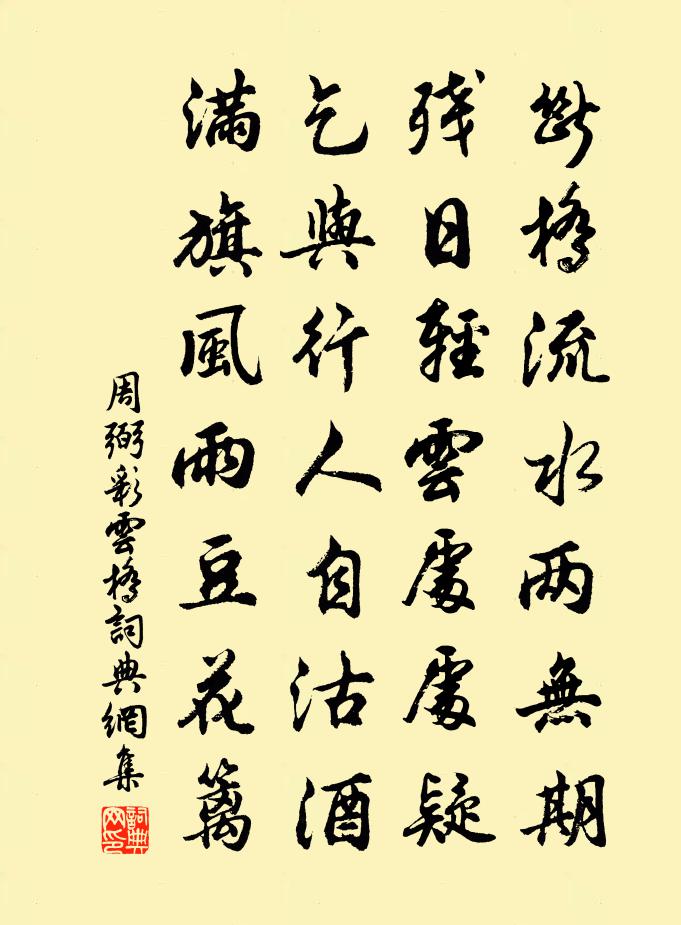 斷橋流水两無期
残日輕雲處處疑
乞與行人自沽酒
满旗風雨豆花籬
周弼彩雲橋詞典網集
詞典网印